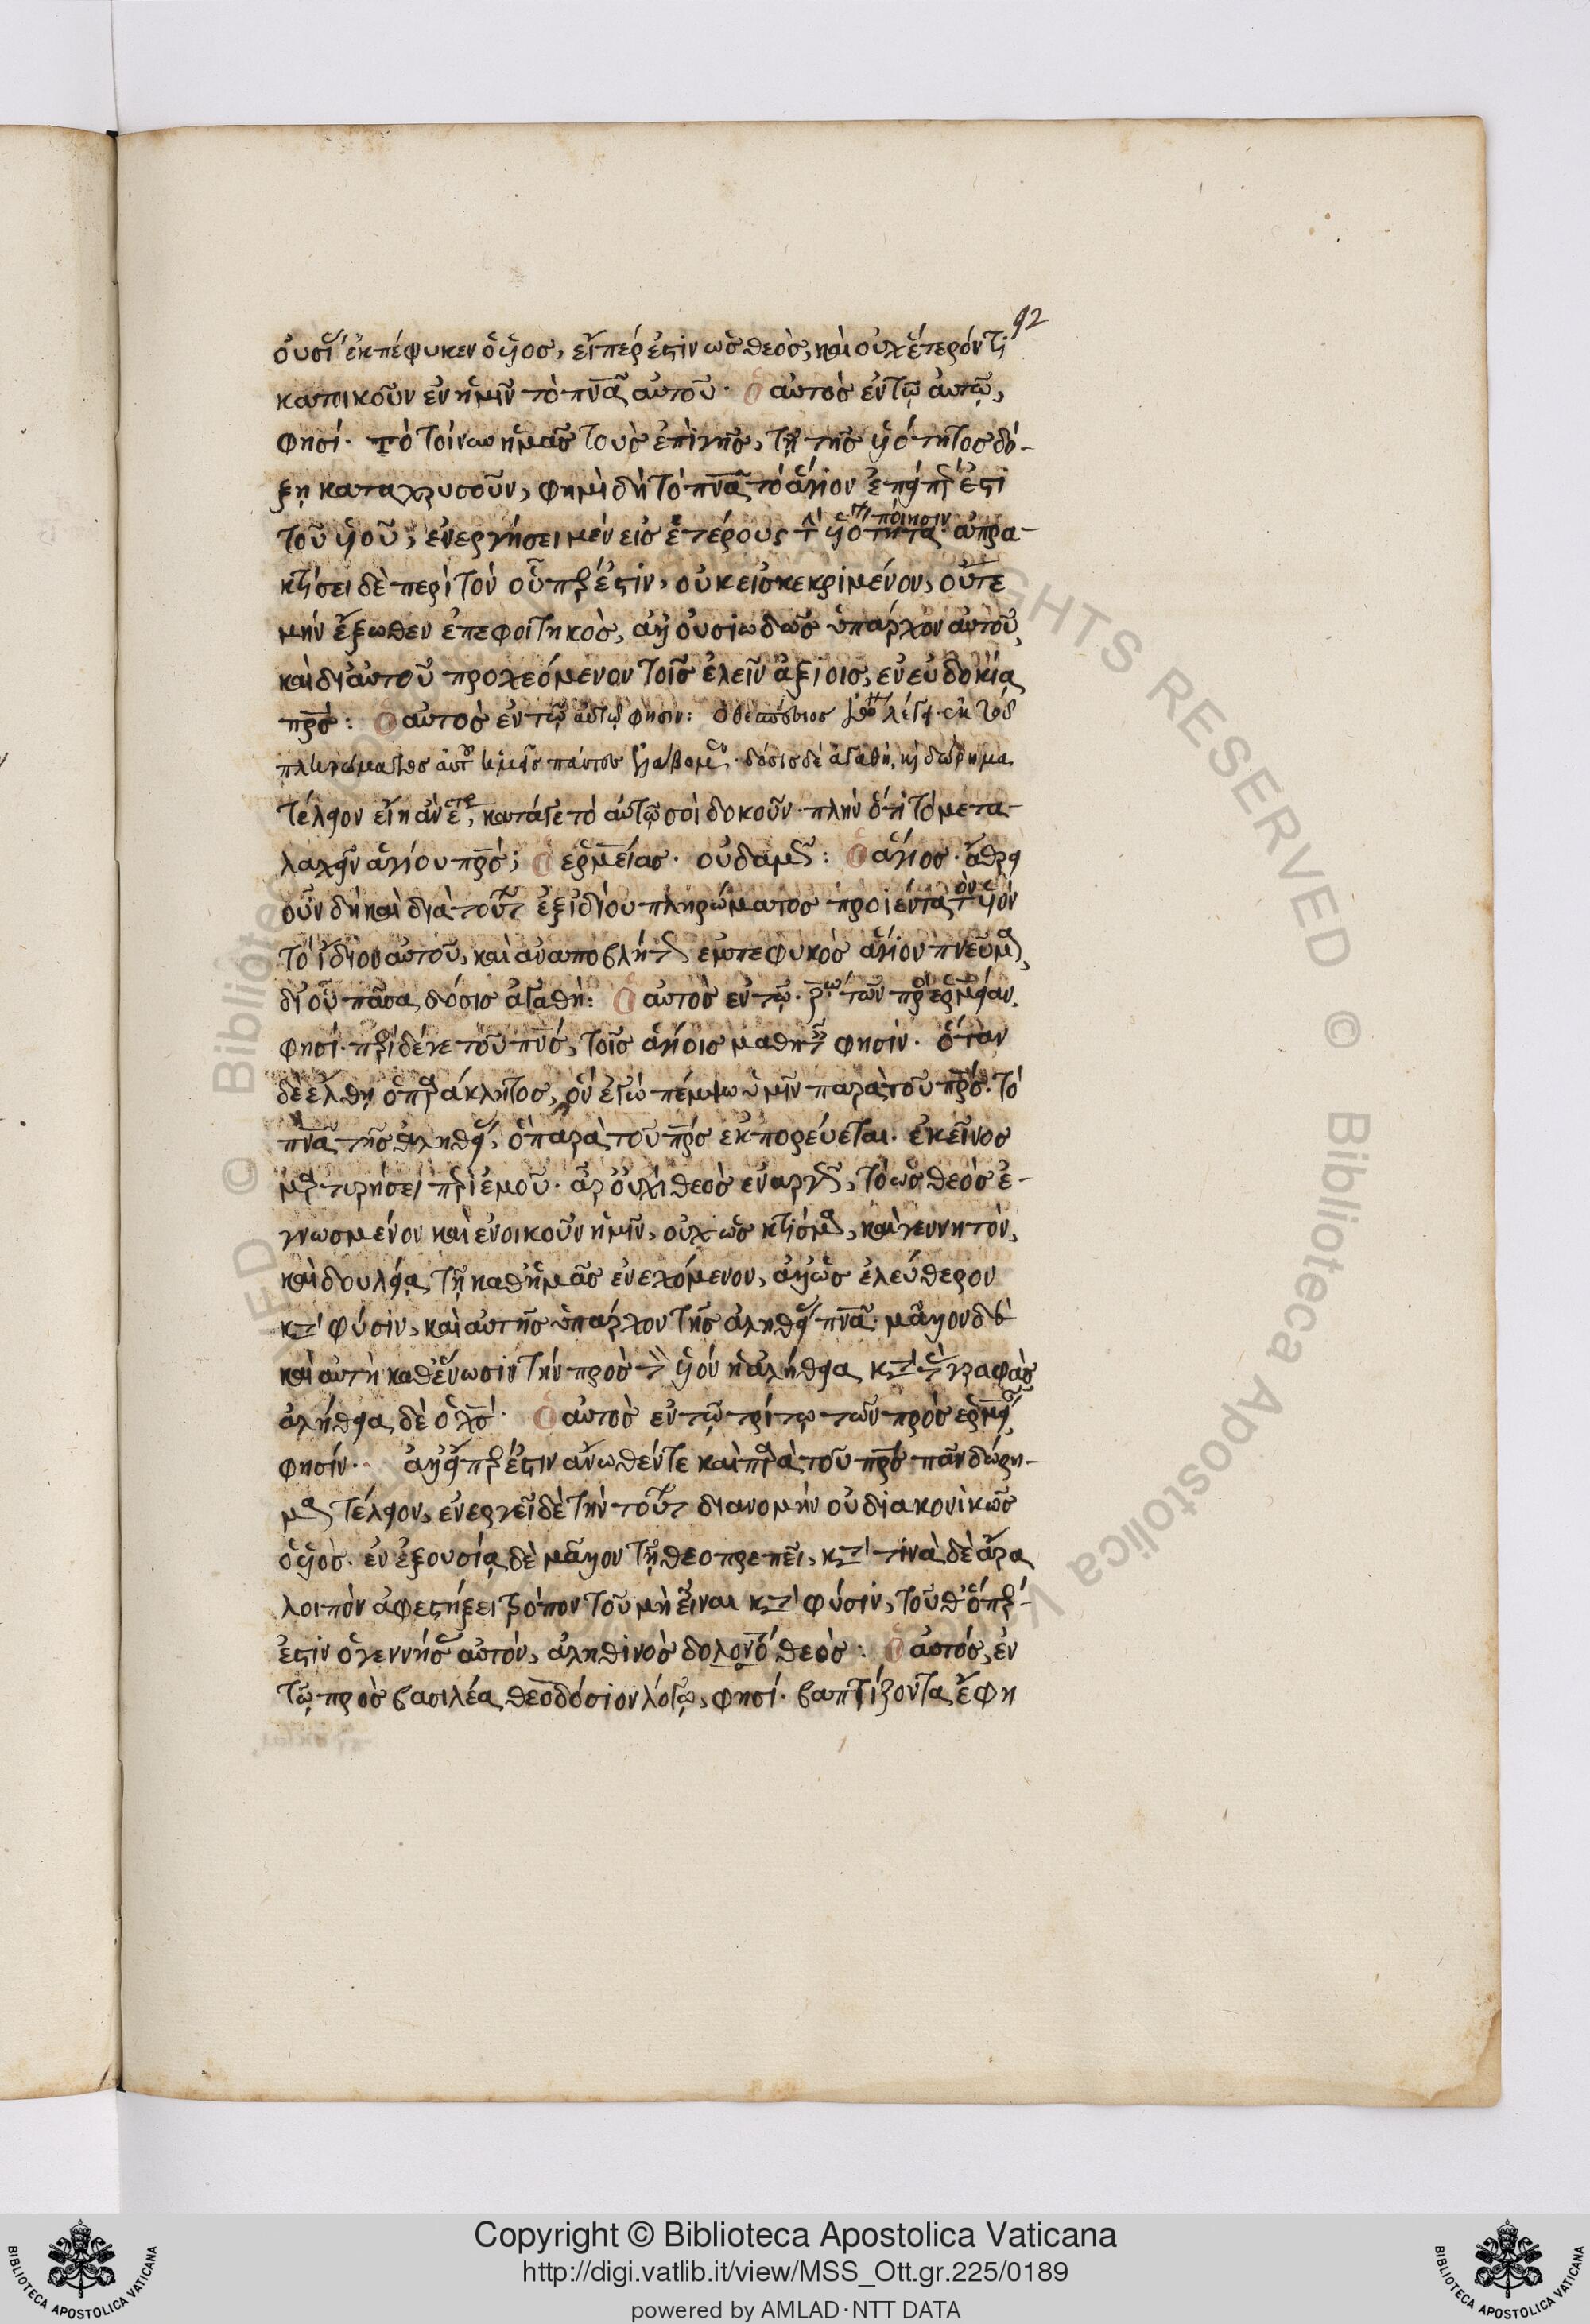 92
οὐσί ἐκπέφυκεν ὁ ὑιος, εἴπέρ ἐστιν ὡς θεὸς, καὶ οὐχ ἕτερόν τι
κατοικοῦν ἐν ἡμῖν τὸ πνᾶ αὐτοῦ· ὁ αὐτὸς ἐν τῷ αὐτῷ,
φησί· τὸ τοίνυν ἡμᾶς τοὺς ἐπὶ γῆς, τῇ τῆς ὑιότητος δό-
ξῃ καταχρυσοῦν, φημὶ δὴ τὸ πνᾶ τὸ ἅγιον ἐπείπερ ἐστι
τοῦ ὑιοῦ, ἐνεργήσει μὲν εἰς ἑτέρους τ ὑιότητα ποίησιν· ἀπρα-
κτήσει δὲ περὶ τὸν οὗπερ ἐστιν, οὐκ εἰσκεκριμένον, οὔτε
μὴν ἔξωθεν ἐπεφοιτηκὸς, ἀλλ οὐσιωδῶς ὑπάρχον αὐτοῦ,
καὶ δι αὐτοῦ προχεόμενον τοῖς ἑλεῖν ἀξίοις, ἐν εὐδοκίᾳ
πρς: ὁ αὐτὸς ἐν τῷ αὐτῷ φησιν:
πληρώματος αὐτοῦ ἡμεῖς πάντες ἐλάβομεν· δόσις δὲ ἀγαθὴ, κ δώρημα
τέλειον εἴη ἂν ἕτερ, κατάγε τὸ αὐτῷ σοὶ δοκοῦν· πλὴν ὅτι τὸ μετα-
λαχεῖν ἁγίου πρς; ἑρμείας· οὐδαμῶς: ὁ ἅγιος· ἄθρει
οὖν δὴ καὶ διὰ τοῦτ ἐξ ἰδίου πληρώματος προϊέντα τὸν ὑιόν
τὸ ἴδιον αὐτοῦ, καὶ ἀναποβλήτως ἐμπεφυκὸς ἅγιον πνεῦμα,
δι οὗ πᾶσα δόσις ἀγαθή: ὁ αὐτὸς ἐν τῷ ϛω τῶν πρὸς ἑρμείαν,
φησί· περί δέ γε τοῦ πνς, τοῖς ἁγίοις μαθητ φησίν· ὅταν
δὲ ἔλθῃ ὁ παράκλητος, ὃν ἐγὼ πέμψω ὑμῖν παρὰ τοῦ πρς· τὸ
πνα τῆς ἀληθεί, ὃ παρὰ τοῦ πρς ἐκπορεύεται· ἐκεῖνος
μαρτυρήσει περὶ ἐμοῦ· ἆρ οὐχὶ θεὸς ἐναργῶς, τὸ ὡς θεὸς ἐ-
γνωσμένον καὶ ἐνοικοῦν ἡμῖν, οὐχ ὡς κτίσμα, καὶ γεννητὸν,
καὶ δουλείᾳ τῇ καθ ἡμᾶς ἐνεχόμενον, ἀλλ ὡς ἐλεύθερον
κατ φύσιν, καὶ αὐτῆς ὑπάρχον τῆς ἀληθεί πνα· μᾶλλον δὲ
καὶ αὐτὴ καθ ἕνωσιν τὴν πρὸς τὸν ὑιόν ἡ ἀλήθεια κατ τὰς γραφάς
ἀλήθεια δὲ ὁ χς· ὁ αὐτὸς ἐν τῷ τρίτῳ τῶν πρὸς ἑρμεί,
φησίν· ἀλλ εἴπερ ἐστιν ἄνωθέν τε καὶ παρὰ τοῦ πρς πᾶν δώρη-
μα τέλειον, ἐνεργεῖ δὲ τὴν τοῦτ διανομὴν οὐ διακονικῶς
ὁ ὑιὸς· ἐν ἐξουσίᾳ δὲ μᾶλλον τῇ θεοπρεπεῖ, κατ τίνα δὲ ἄρα
λοιπὸν ἀφεστήξει τρόπον τοῦ μὴ εἶναι κατ φύσιν, τοῦθ ὅπερ
ἐστὶν ὁ γεννήσ αὐτὸν, ἀληθινὸς δολονότι θεὸς: ὁ αὐτὸς, ἐν
τῷ πρὸς βασιλέα θεοδόσιον λόγῳ, φησί· βαπτίζοντα ἔφη
Copyright © Biblioteca Apostolica Vaticana
http://digi.vatlib.it/view/MSS_Ott.gr.225/0189
powered by AMLAD·NTT DATA